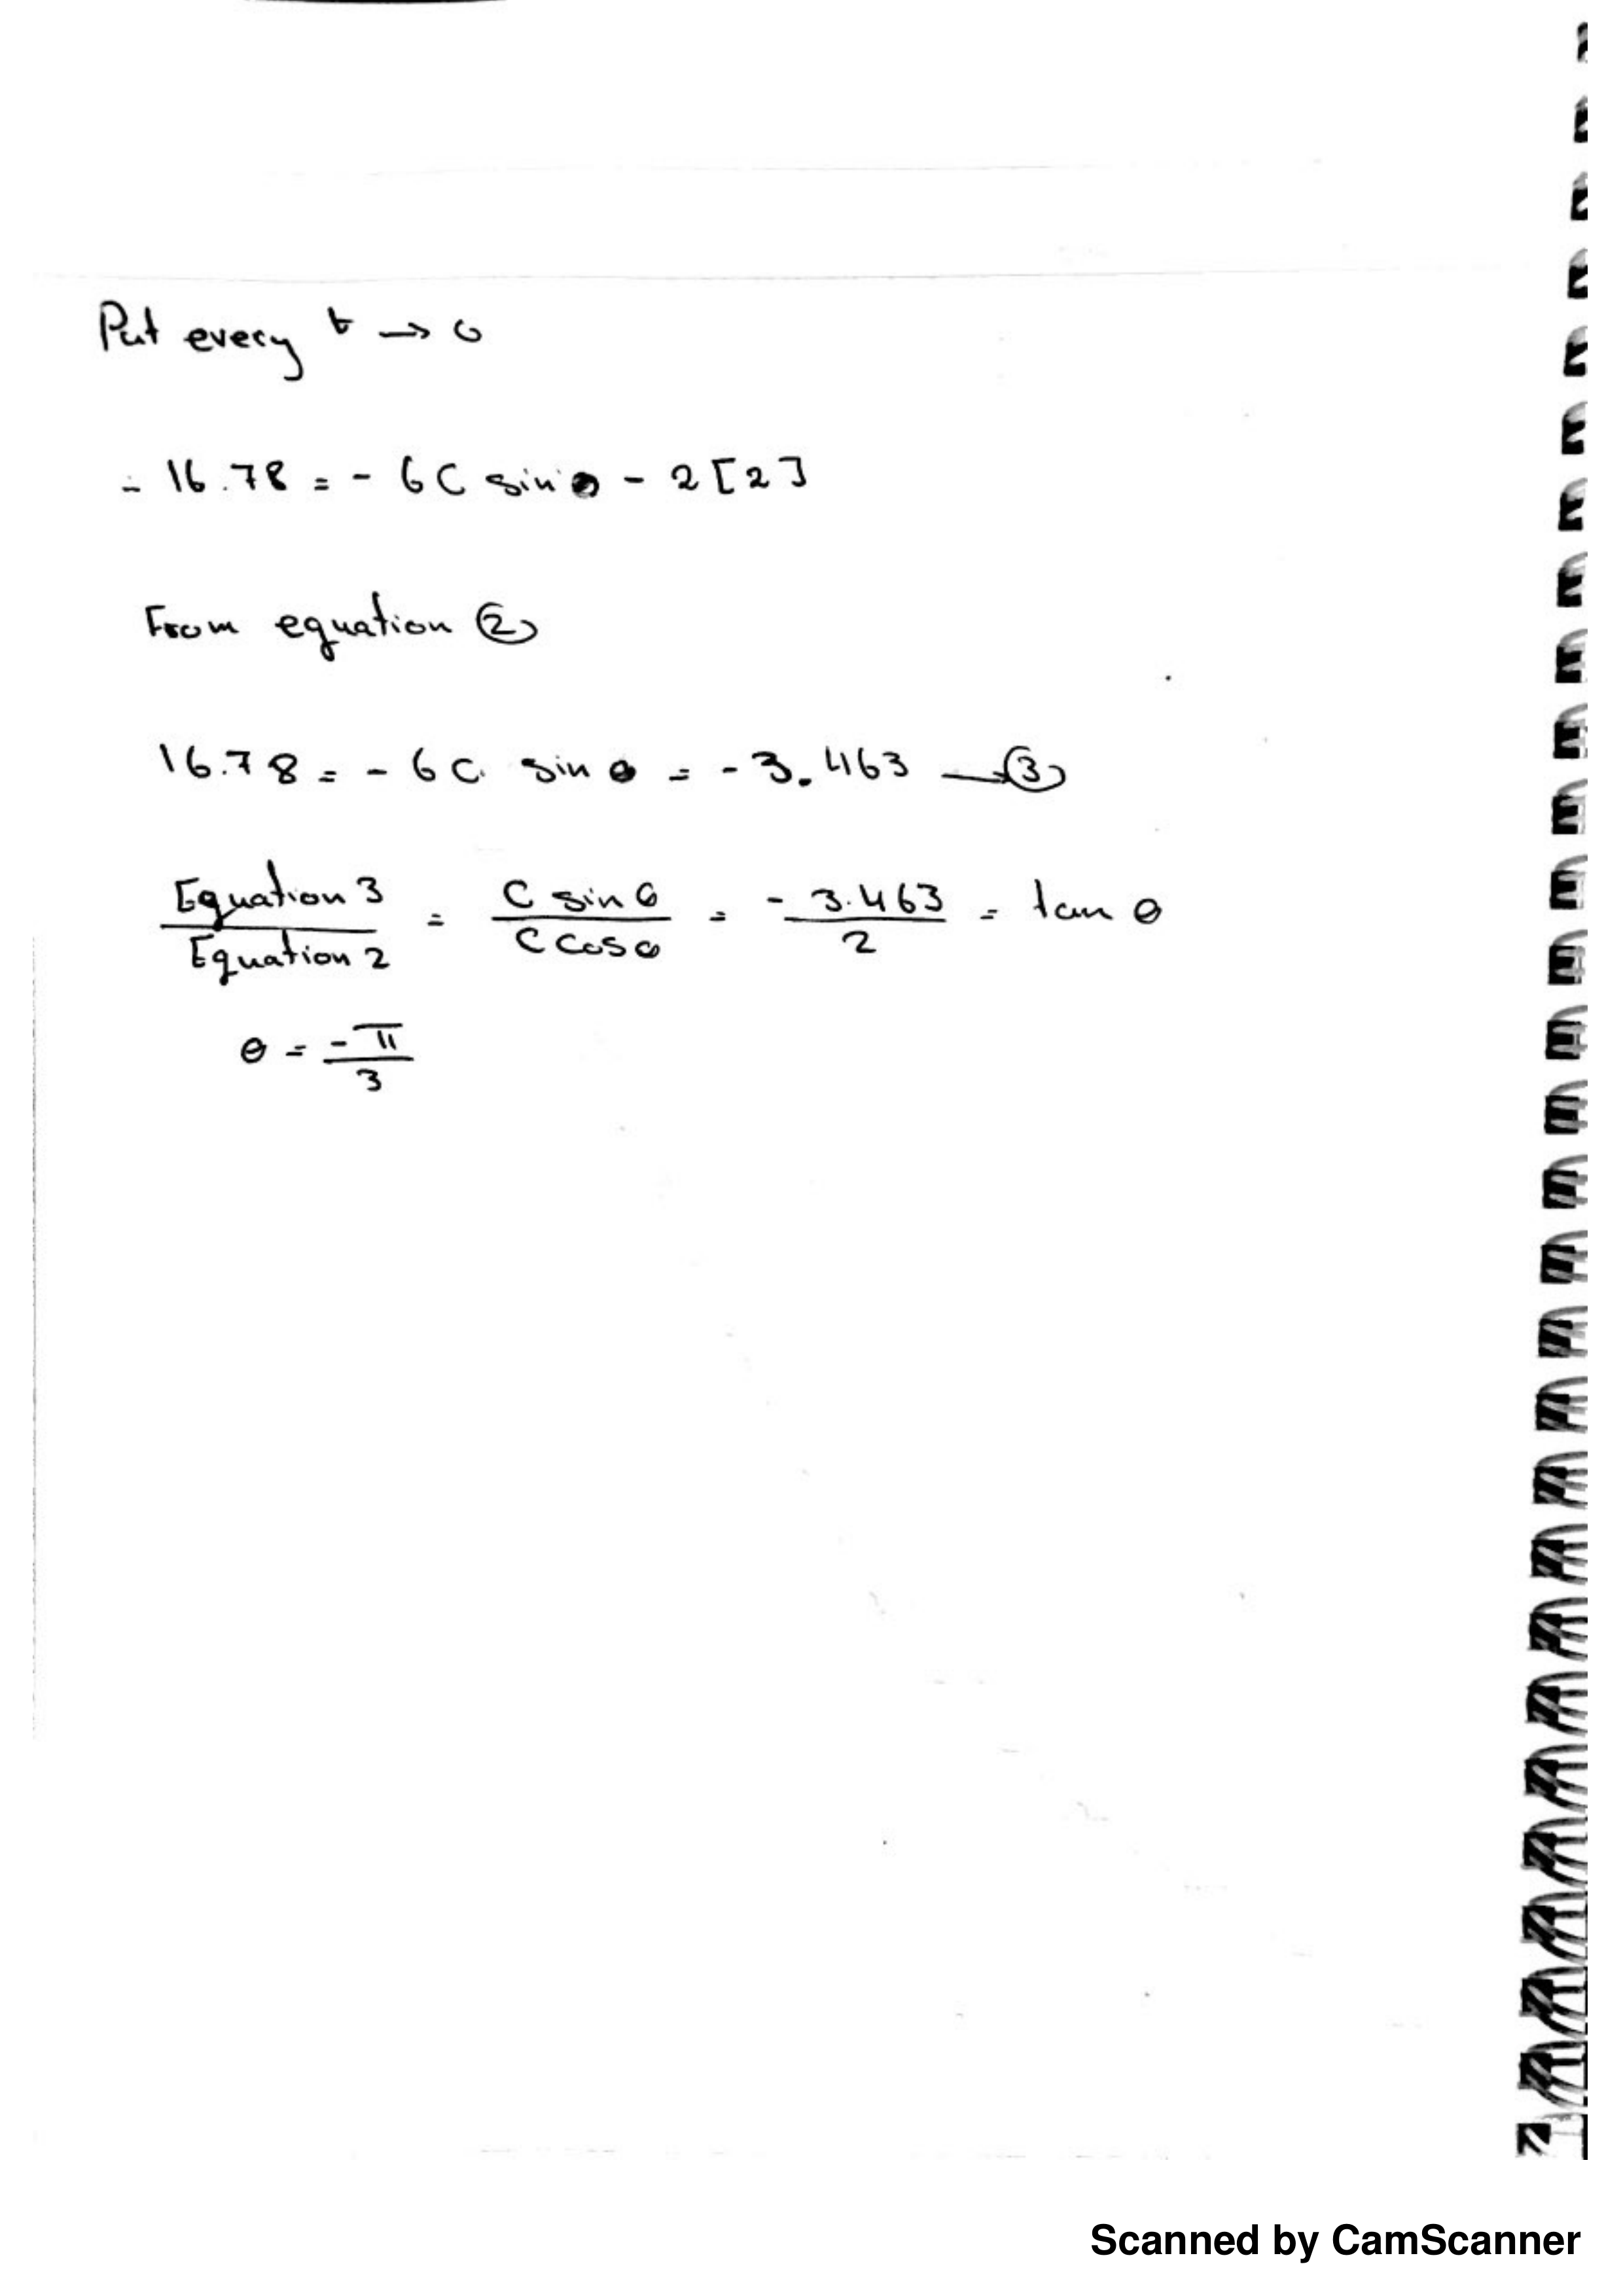 Put every t → 0
- 16.78 = - 6 C sin θ - 2 [2]
From equation ②
16.78 = - 6 C. sin θ = - 3.463 — ③
Equation 3 / Equation 2 = C sin θ / C cos θ = - 3.463 / 2 = tan θ
θ = -π / 3
Scanned by CamScanner